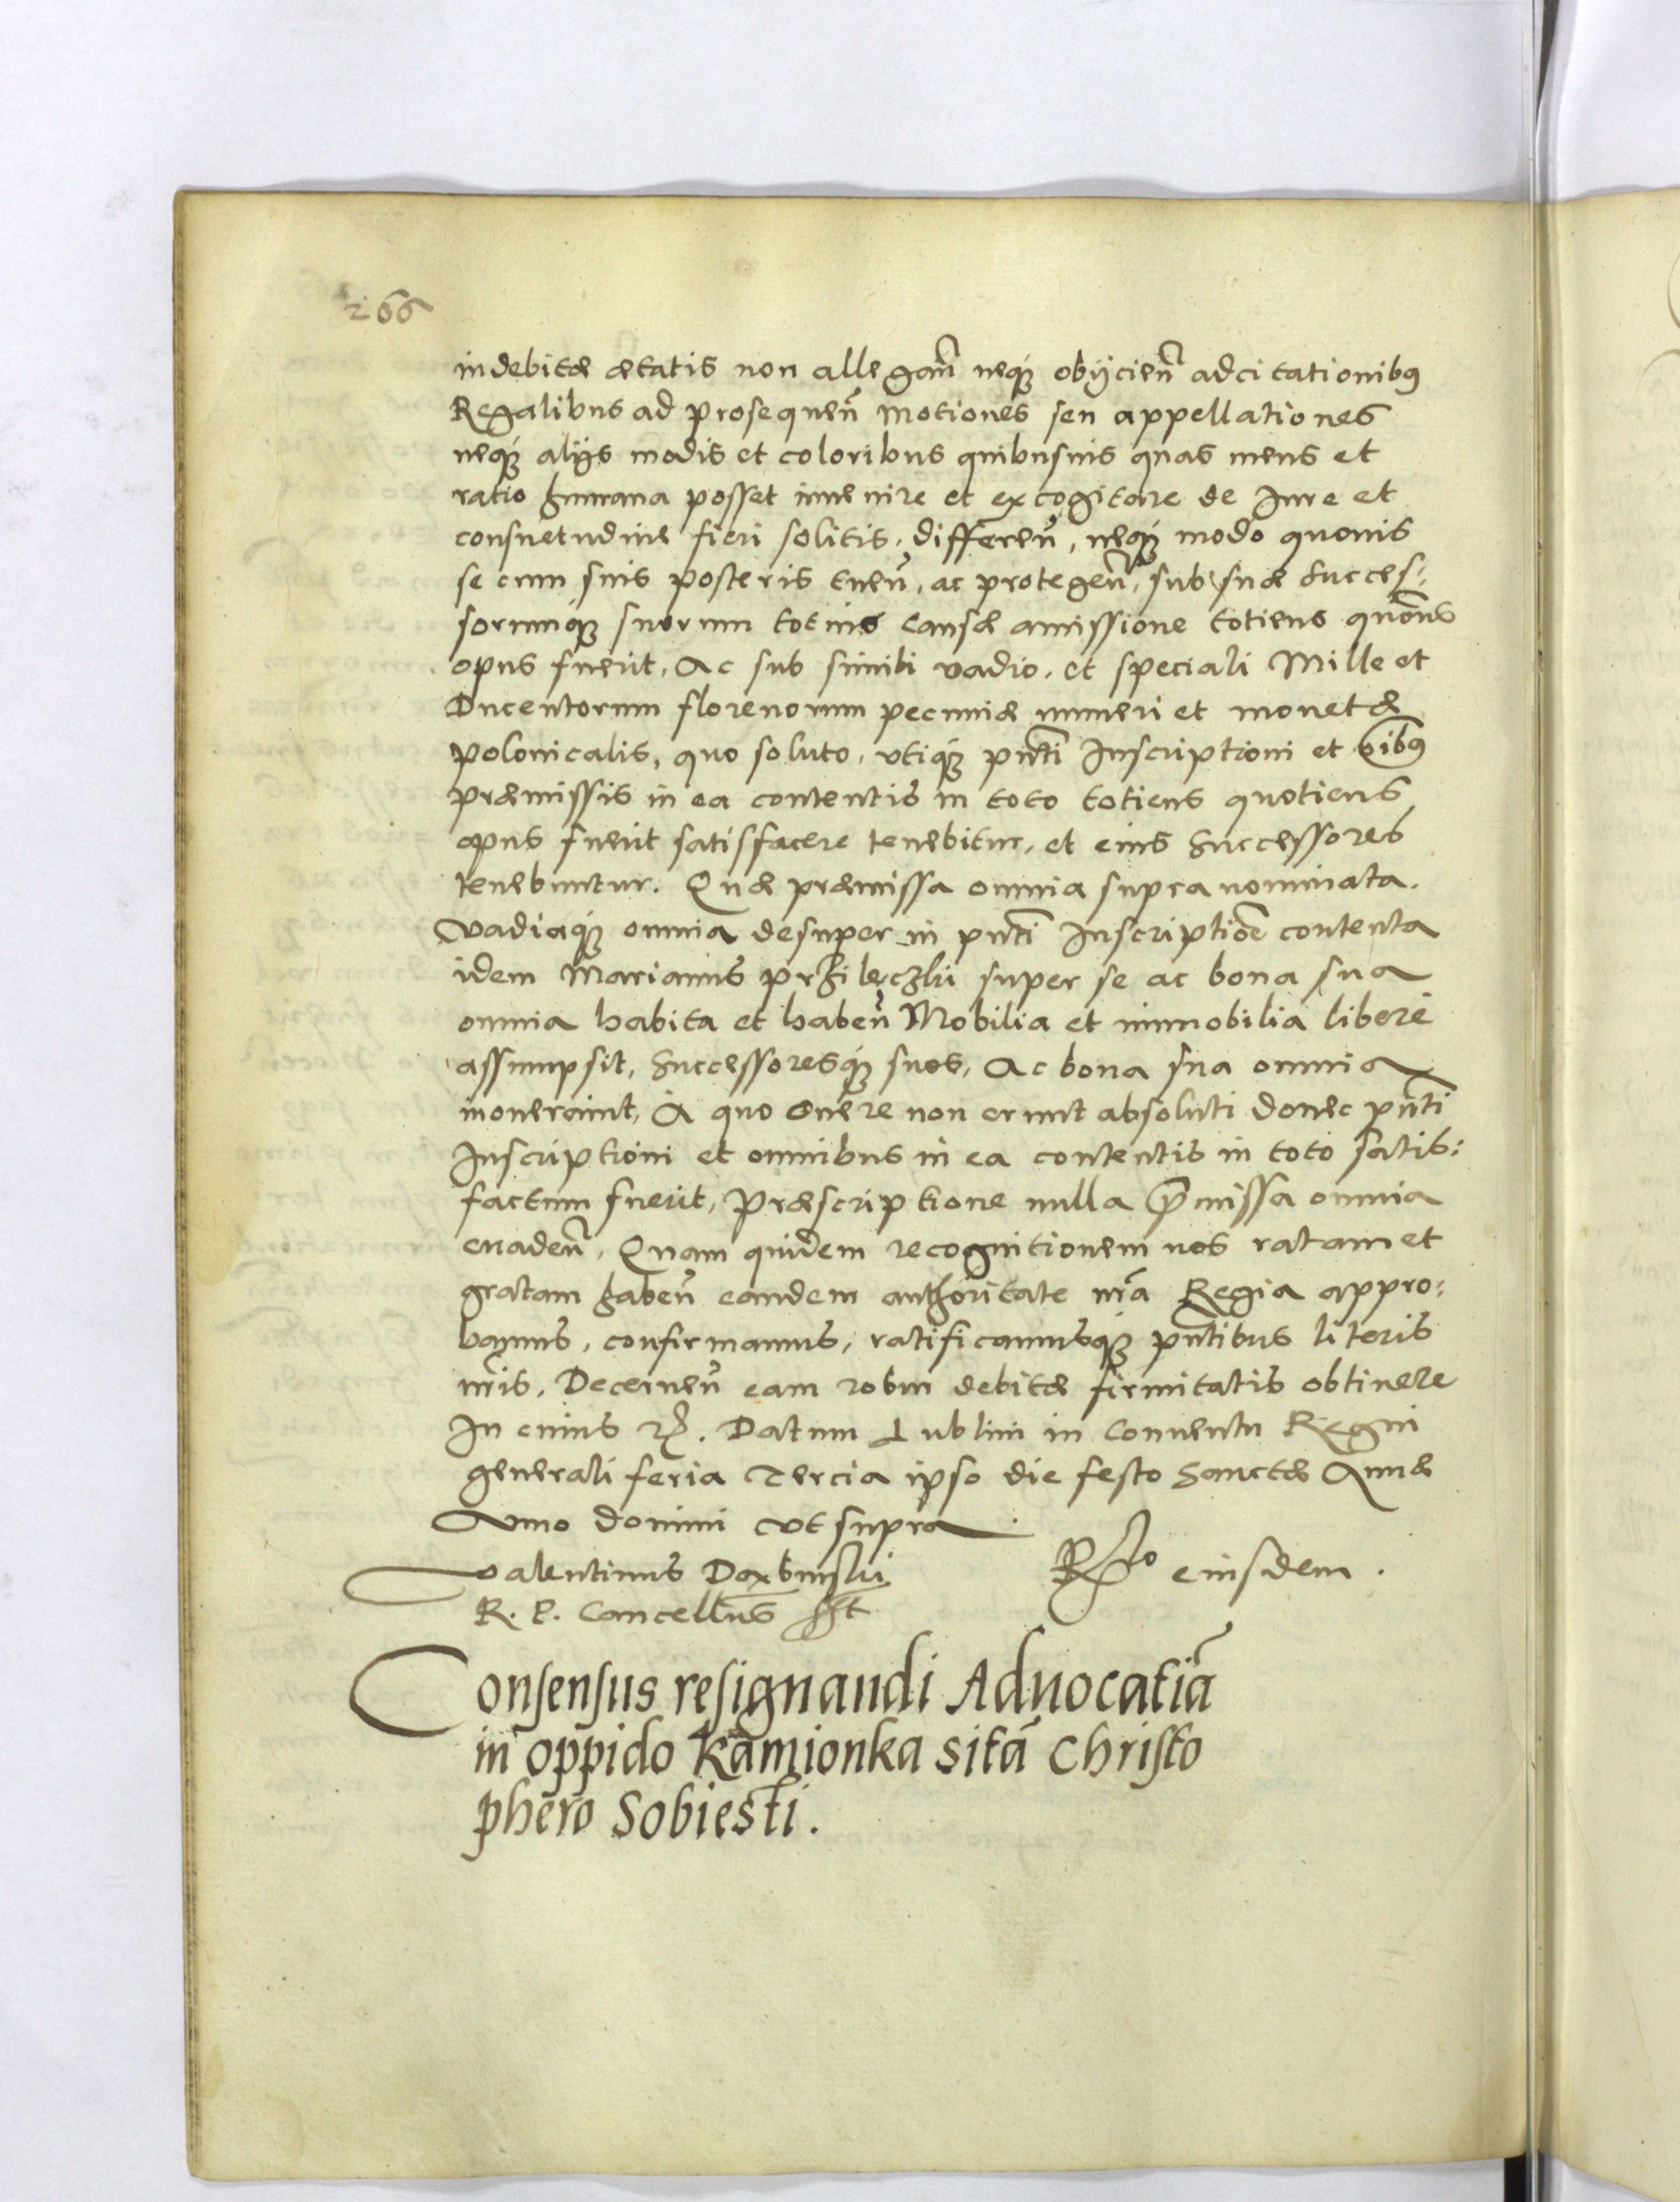 266
indebitæ ætatis non allegan̄ neq̨ȝ obÿcien̄ adcitationibꝰ
Regalibus ad prosequen̄ Motiones seu appellationes
neq̨ȝ alijs modis et coloribus quibusuis quas mens et
ratio humana posset inuenire et excogitare de Iure et
consuetudine fieri solitis, differen̄, neq̨ȝ modo quouis
se cum suis posteris tuen̄, ac protegen̄, sub suæ Succes:
sorumq̨ȝ suorum totius Causæ amissione totiens quōns
opus fuerit, Ac sub simili vadio, et speciali Mille et
Ducentorum florenorum pecuniæ numeri et monetæ
polonicalis, quo soluto, vtiq̨ȝ pn̄ti Inscriptioni et oīibꝰ
præmissis in ea contentis in toto totiens quotiens
opus fuerit satisfacere tenebitur, et eius Successores
tenebuntur. Quæ præmissa omnia supra nominata.
Vadiaq̨ȝ omnia desuper in pn̄ti Inscriptiōe contenta
idem Marianus Przilęczki super se ac bona sua
omnia habita et haben̄ Mobilia et immobilia libere
assumpsit, Successoresq̨ȝ suos, Ac bona sua omnia
inonerauit, A quo onere non erunt absoluti donec pn̄ti
Inscriptioni et omnibus in ea contentis in toto satis:
factum fuerit, Præscriptione nulla p̄missa omnia
euaden̄, Quam quidem recognitionem nos ratam et
gratam haben̄ eandem authoritate nr̄a Regia appro:
bamus, confirmamus, ratificamusq̨ȝ pn̄tibus literis
nr̄is, Decernen̄ eam robur debitæ firmitatis obtinere
In cuius rȝ. Datum Lublini in Conuentu Regni
generali feria Tercia ipso die festo Sanctæ Annæ
Anno domini vt supra.
Valentinus Dembinski
R. P. Cancellr̄ius sst
Rȩlo eiusdem.
Consensus resignandi Aduocatiā
in oppido Kamionka sitā Christo
phero Sobiesti.